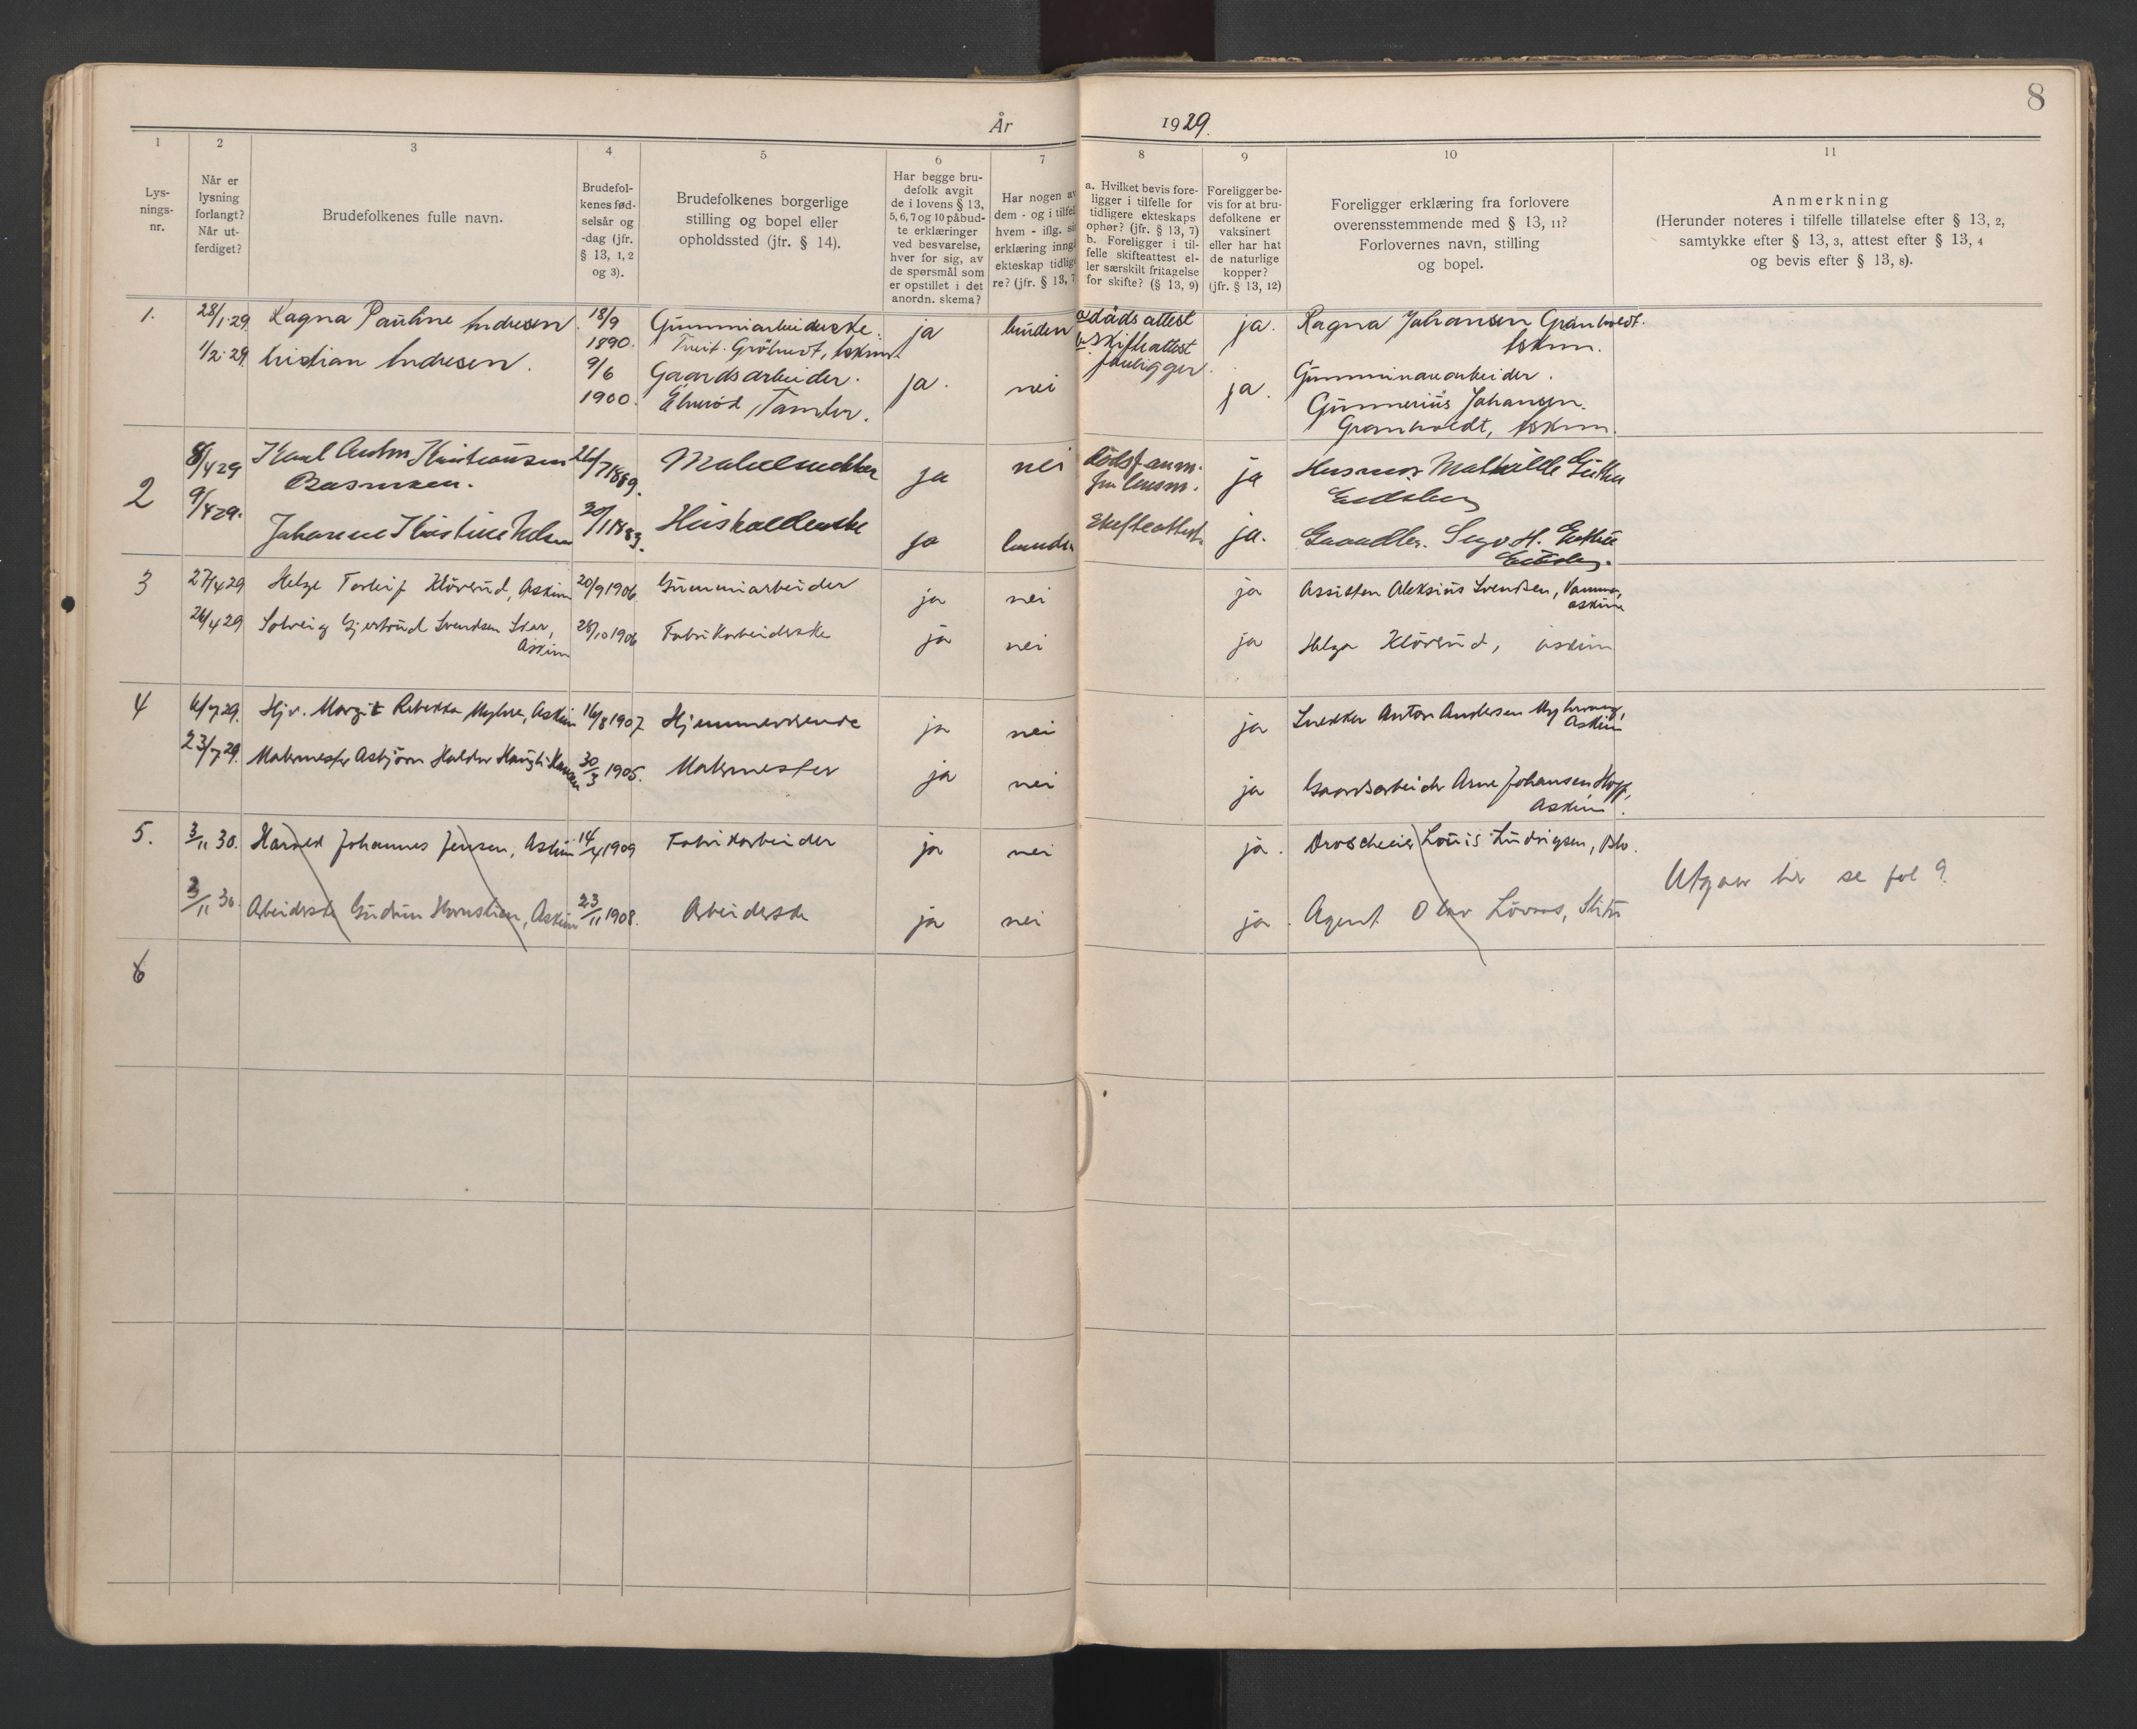 8
År 1929.
1
Lys-
nings-
nr.
2
Når er
lysning
forlangt?
Når ut-
ferdiget?
3
Brudefolkenes fulle navn.
4
Brudefol-
kenes fød-
selsår og
-dag (jfr.
§ 13, 1, 2
og 3).
5
Brudefolkenes borgerlige
stilling og bopel eller
opholdssted (jfr. § 14).
6
Har begge bru-
defolk avgit
de i lovens § 13,
5, 6, 7 og 10 påbud-
te erklæringer
ved besvarelse,
hver for sig, av
de spørsmål som
er opstillet i det
anordn. skema?
7
Har nogen av
dem - og i tilfel
hvem - iflg. si
erklæring inngå
ekteskap tidlig
re? (jfr. § 13, 7
8
a. Hvilket bevis fore-
ligger i tilfelle for
tidligere ekteskaps
ophør? (jfr. § 13, 7)
b. Foreligger i til-
felle skifteattest el-
ler særskilt fritagelse
for skifte? (§ 13, 9)
9
Foreligger be-
vis for at bru-
defolkene er
vaksinert
eller har hat
de naturlige
kopper?
(jfr. § 13, 12)
10
Foreligger erklæring fra forlovere
overensstemmende med § 13, 11?
Forlovernes navn, stilling
og bopel.
11
Anmerkning
(Herunder noteres i tilfelle tillatelse efter § 13, 2,
samtykke efter § 13, 3, attest efter § 13, 4
og bevis efter § 13, 8).
1. 28/1-29. Ragna Pauline Andresen. 18/9 1890. Gummiarbeiderske. ja bruden a dåds attest ja. Ragna Johansen Granholdt.
Askim.
b skifteattest
foreligger.
1/2-29. Kristian Andresen. 9/6 1900. Gaardsarbeider. ja. nei ja. Gummivarearbeider.
Gunnerius Johansen.
Granholdt, Askim.
2 8/4 29 Karl Anton Kristiansen 26/7 1889. ja nei ja Husmor Mathilde
Rasmussen.
Eidsberg
9/4 29. Johanne Kristine 20/1 1883. Husholderske ja bruden Skifteattest ja. Gaardbr.
3 27/4 29 Helge Torleif Klöverud, Askim 20/9 1906. Gummiarbeider ja nei ja Assistent Aleksius Svendsen, Vamma,
Askim
26/4 29 Solveig Gjertrud Svendsen Lier, 28/10 1906 Fabrikarbeiderske ja nei ja Helga Klöverud, Askim
Askim
4 6/7 29. Hjv. Margit Rebekka Myhre, Askim 16/8 1907 Hjemmeværende ja nei ja Snekker Anton Andersen Myhrvang,
Askim
23/7 29. Malermester Asbjörn Haldor Hansen 30/3 1905. Malermester ja nei ja Gaardsarbeider Arne Johansen Hoff,
Askim.
5. 3/11 30. Harald Johannes Jensen, Askim 14/4 1909 Fabrikarbeider ja nei ja. Droscheeier Louis Ludvigsen, Oslo.
Utgaar her se fol 9.
3/11 30. Arbeiderske Gudrun, Askim 23/11 1908. Arbeiderske ja nei ja. Agent Olav Lövaas,
6